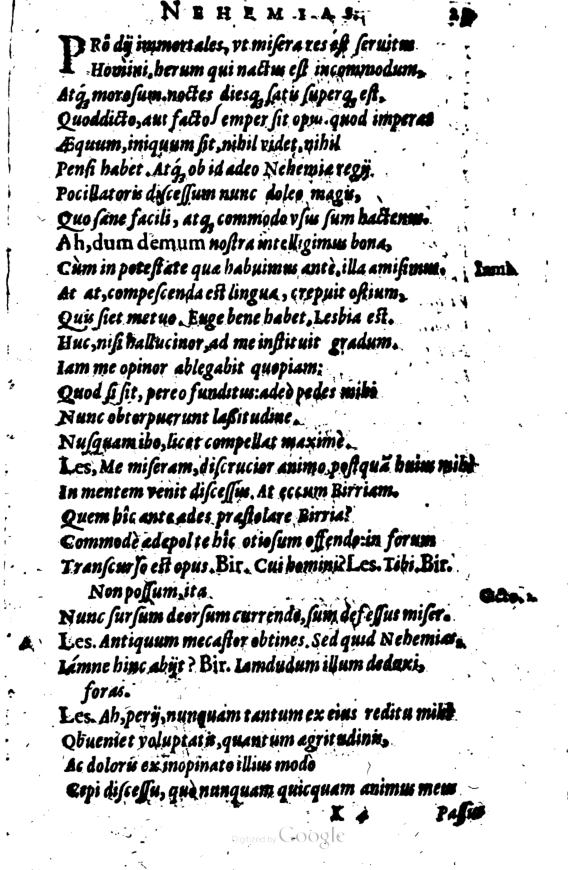 NEHEMIAS.
PRô dij immortales, vt misera res est seruitus
Homini, herum qui nactus est incommodum,
Atq́; morosum. noctes diesq́; satis superq́; est,
Quod dicto, aut facto semper sit opus. quod imperas
Æquum, iniquum sit, nihil videt, nihil
Pensi habet. Atq́; ob id adeo Nehemia regij
Pocillatoris discessum nunc doleo magis,
Quo sane facili, atq́; commodo vsus sum hactenus.
Ah, dum demum nostra intelligimus bona,
Cùm in potestate qua habuimus antè, illa amisimus. Iamb.
At at, compescenda est lingua, crepuit ostium,
Quis siet metuo. Euge bene habet, Lesbia est.
Huc, nisi hallucinor, ad me instituit gradum.
Iam me opinor ablegabit quopiam:
Quod si sit, pereo funditus: adeò pedes mihi
Nunc obtorpuerunt lassitudine.
Nusquam ibo, licet compellat maximè.
Les, Me miseram, discrucior animo, postquã huius mihi
In mentem venit discessus. At eccum Birriam.
Quem hîc ante ades præstolare Birria?
Commodè adepol te hîc otiosum offendo: in forum
Transcurso est opus. Bir. Cui homini? Les. Tibi. Bir.
Non possum, ita
Nunc sursum deorsum currendo, sum defessus miser.
Les. Antiquum mecastor obtines. Sed quid Nehemias,
Iámne hinc abijt? Bir. Iamdudum illum deduxi,
foras.
Les. Ah, perij, nunquam tantum ex eius reditu mihi
Obueniet voluptatis, quantum ægritudinis,
Ac doloris ex inopinato illius modò
Cepi discessu, quò nunquam quicquam animus meus
X 4 Passus
Digitized by Google